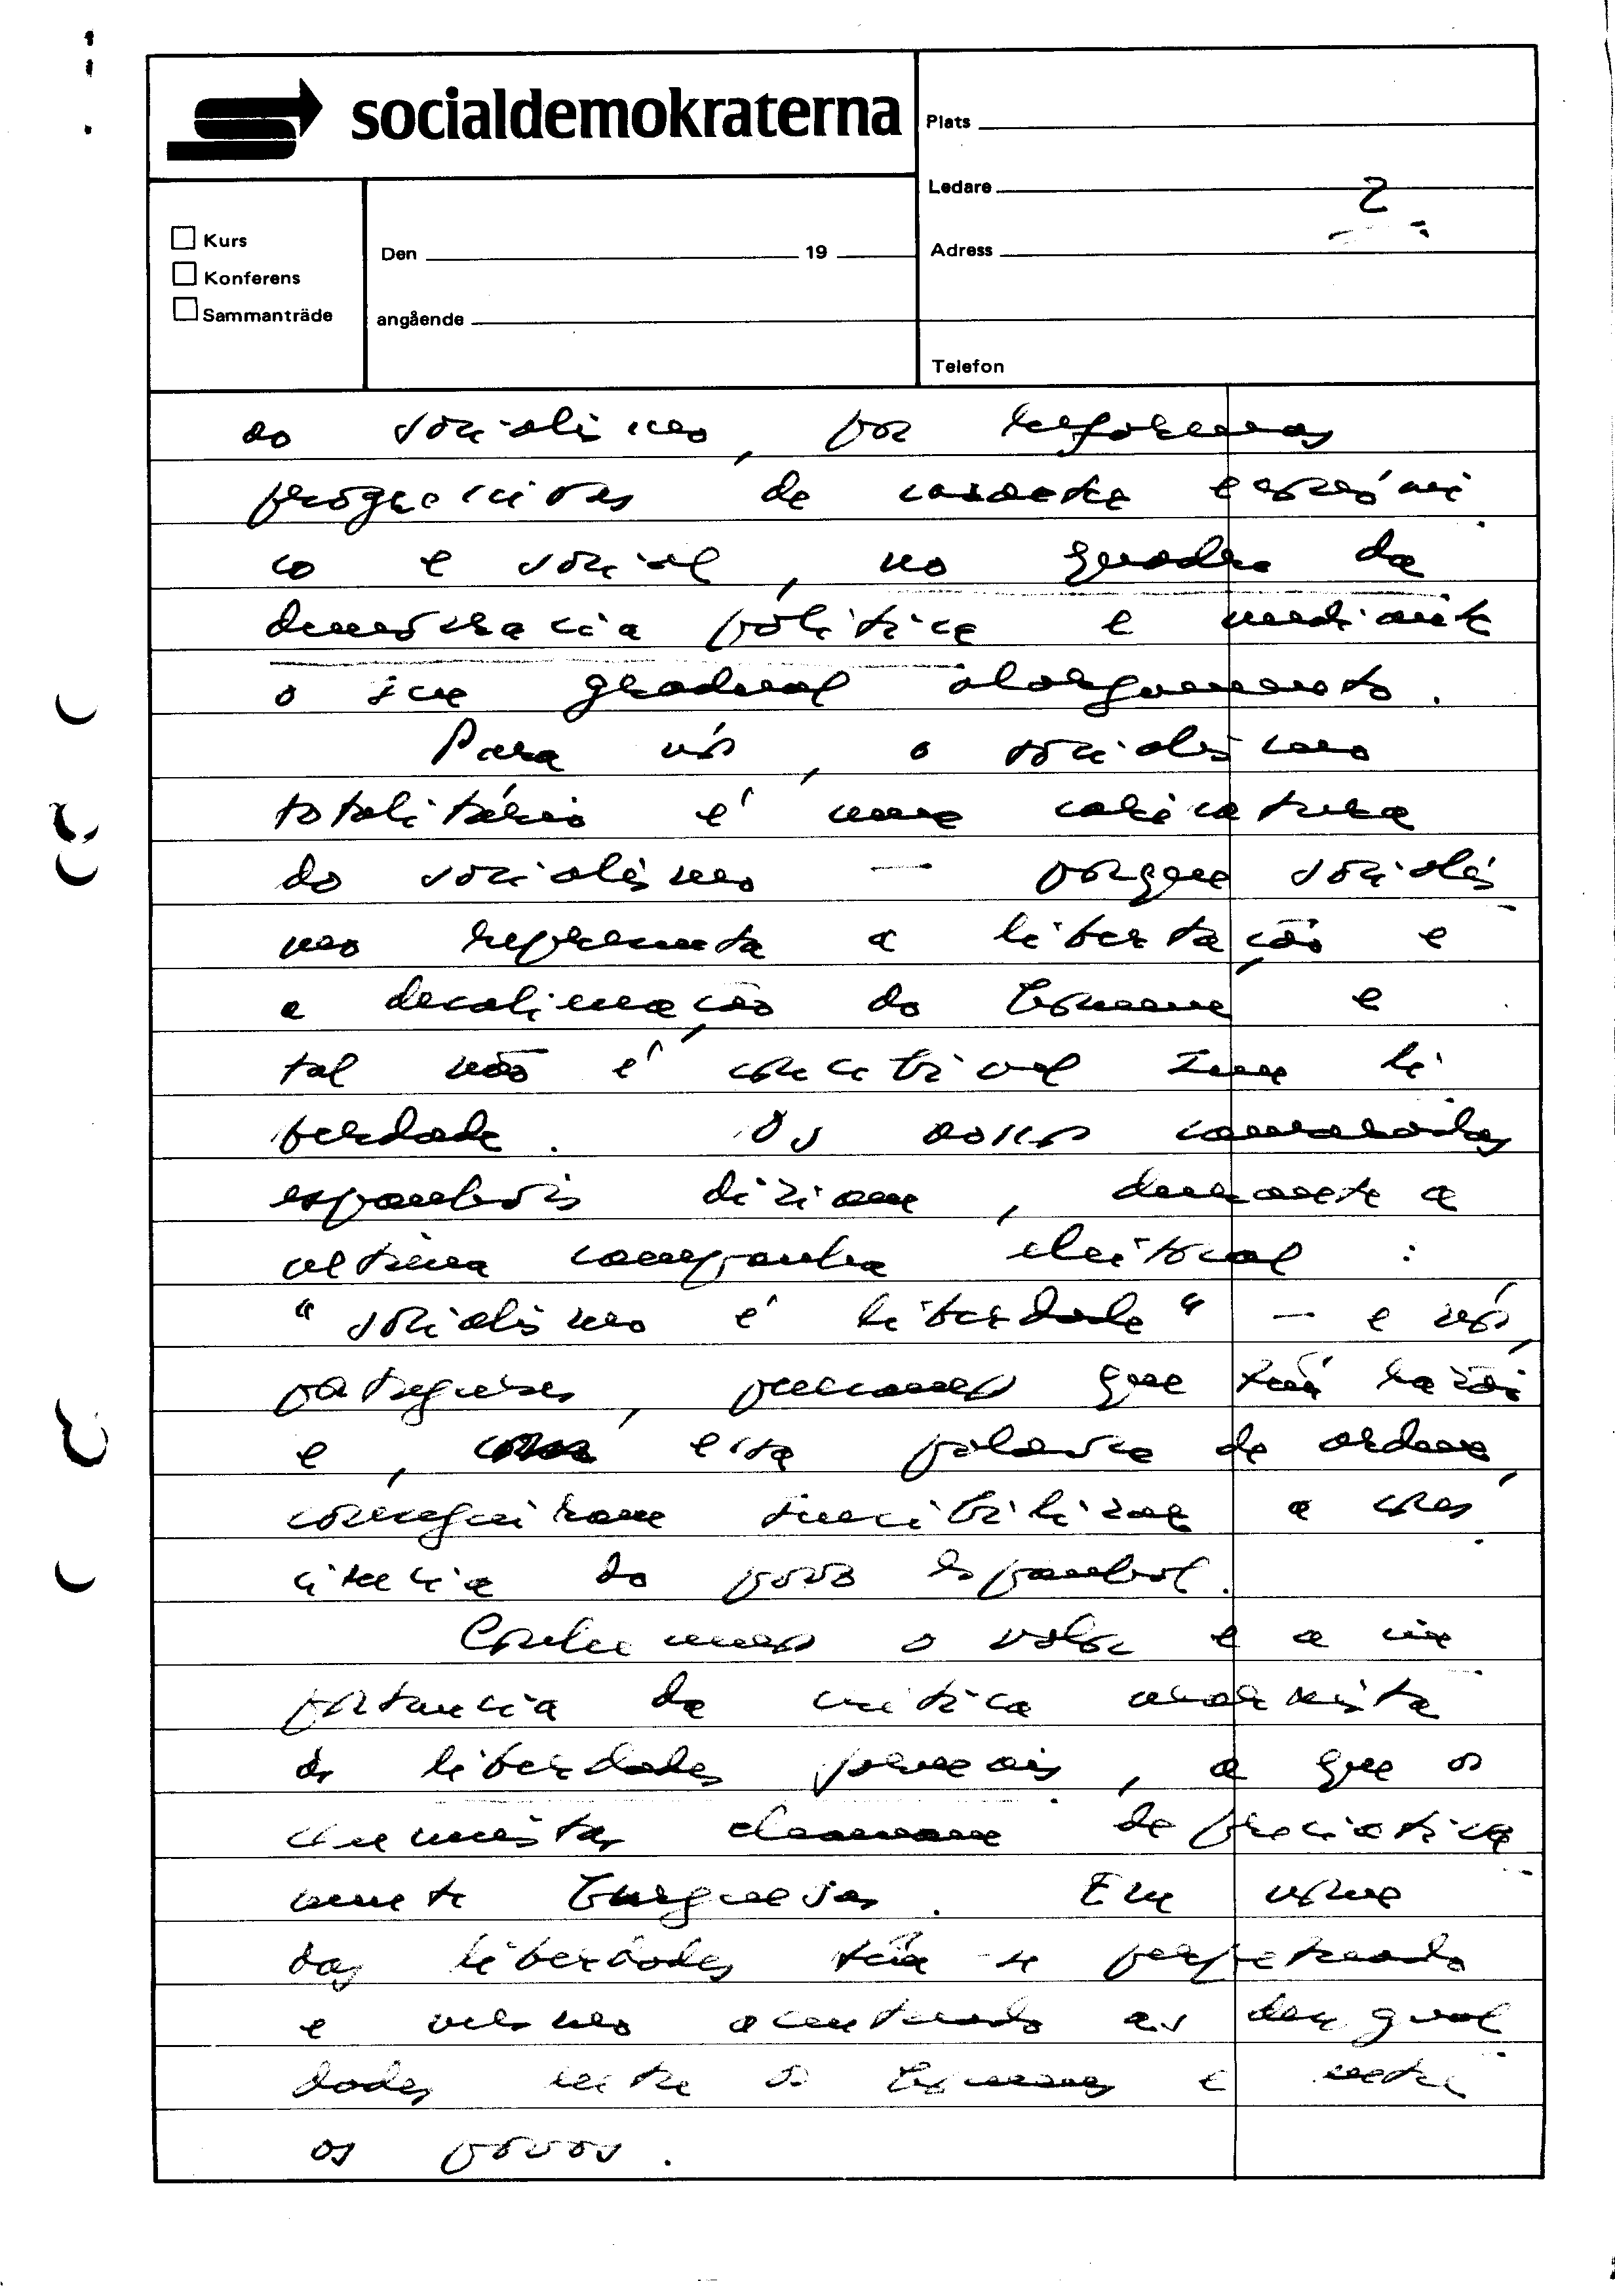 socialdemokraterna
Plats
Ledare 2
Kurs
Konferens
Sammanträde
Den 19
angående
Adress
Telefon
ao socialismo, por reformas
progressivas de carácter económi
co e social, no quadro da
democracia política e mediante
o seu gradual alargamento.
Para nós, o socialismo
totalitário é uma caricatura
do socialismo — porque socialis
mo representa a libertação e
a desalienação do homem e
tal não é concebível sem li
berdade. Os nossos camaradas
espanhóis diziam, durante a
última campanha eleitoral:
"socialismo é liberdade" — e nós,
portugueses, pensamos que têm razão
e, com esta palavra de ordem,
conseguiram sensibilizar a cons
ciência do povo espanhol.
Conhecemos o valor e a im
portancia da crítica marxista
às liberdades formais, a que os
comunistas chamam depreciativa
mente burguesas. Em nome
das liberdades têm-se perpetuado
e mesmo acentuado as desigual
dades entre os homens e entre
os povos.